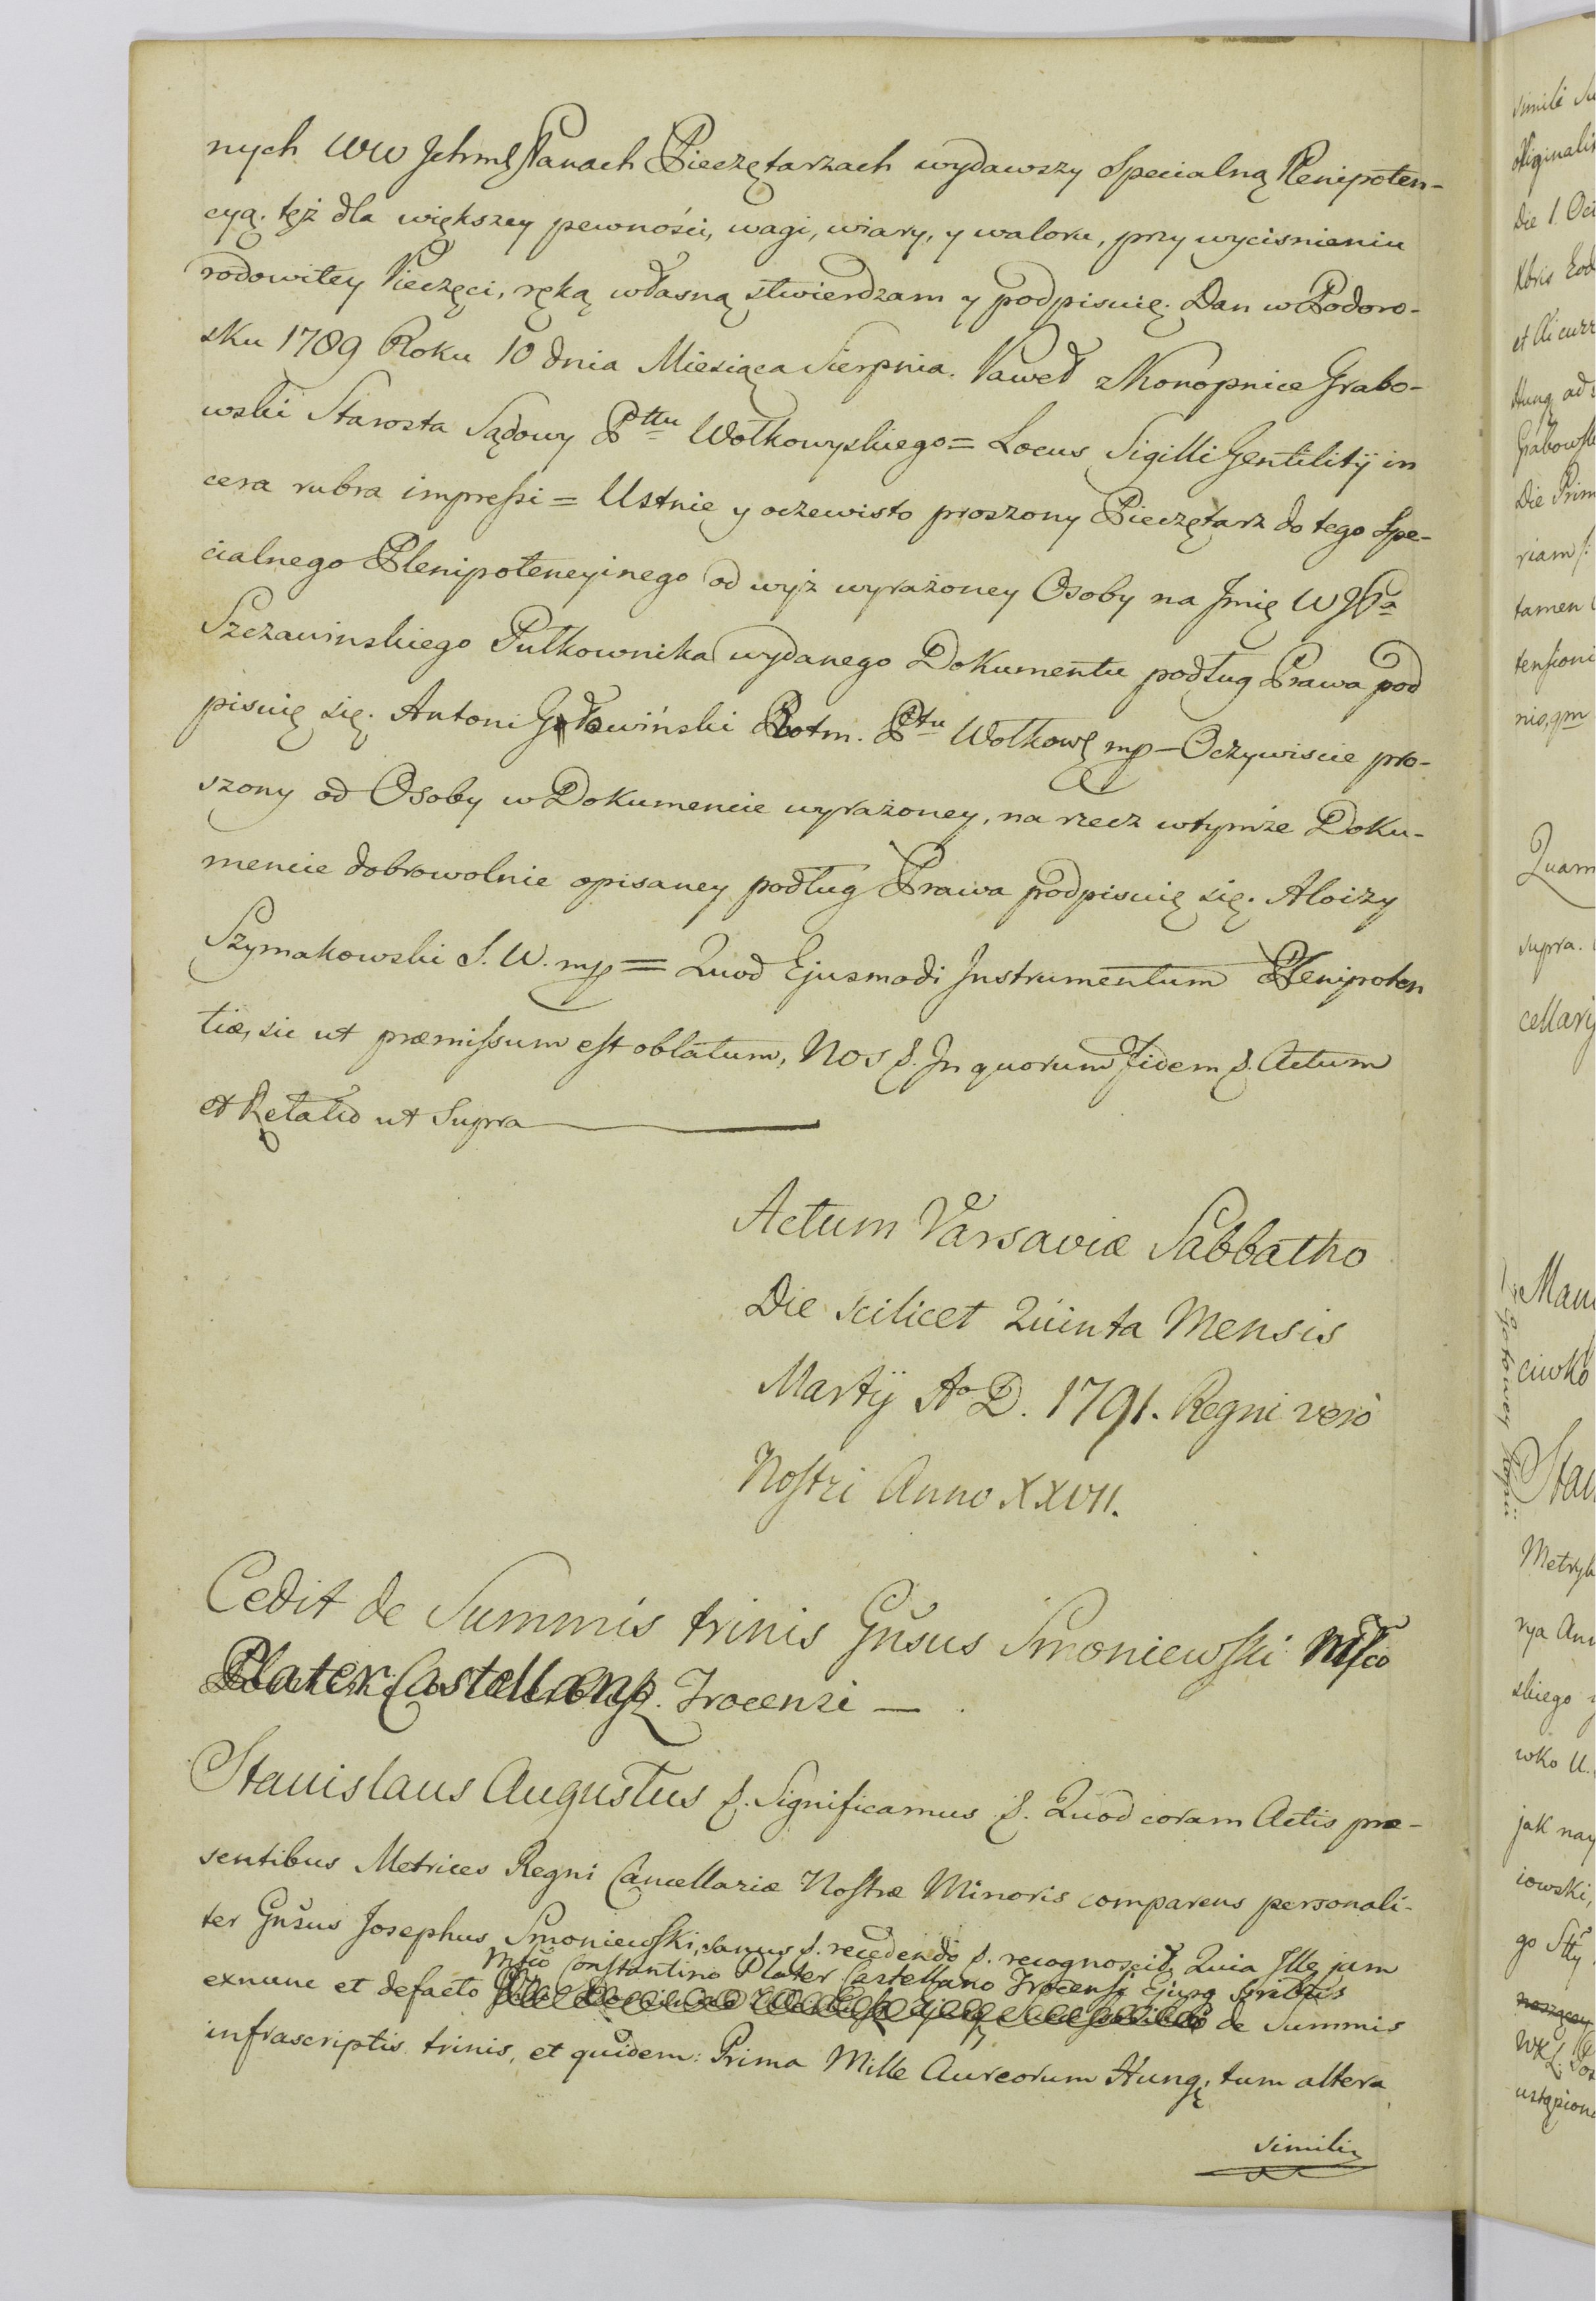 nych WW Jchmć Panach Pieczętarzach wydawszy Specialną Plenipoten-
cyą. tęż dla większey pewności, wagi, wiary, y waloru, przy wycisnieniu
rodowitey Pieczęci, ręką własną ztwierdzam y podpisuię. Dan w Podoro-
sku 1789 Roku 10 dnia Miesiąca Sierpnia. Paweł z Konopnice Grabo-
wski Starosta Sądowy Pttu Wołkowyskiego = Locus Sigilli Gentilitij in
cera rubra impressi = Ustnie y oczewisto proszony Pieczętarz do tego Spe-
cialnego Plenipotencyinego od wyż wyrażoney Osoby na Jmię W JPa
Szczawinskiego Pułkownika wydanego Dokumentu podług Prawa pod
pisuię się. Antoni Gołowiński Rotm. Pttu Wołkow mp – Oczywiscie pro-
szony od Osoby w Dokumencie wyrażoney, na rzecz w tymże Doku-
mencie dobrowolnie opisaney podług Prawa podpisuię się. Aloizy
Szymakowski S. W. mp = Quod Ejusmodi Instrumentum Plenipoten
tiæ, sic ut præmissum est oblatum, Nos &. In quorum Fidem &. Actum
et Relatio ut Supra
Actum Varsaviæ Sabbatho
Die scilicet Quinta Mensis
Martij Ao D. 1791. Regni verò
Nostri Anno XXVII.
Cedit de Summis trinis Gnsus Smoniewski Mfco
Plater Castellano Trocensi —
Stanislaus Augustus &. Significamus &. Quod coram Actis præ-
sentibus Metrices Regni Cancellariæ Nostræ Minoris comparens personali-
ter Gnsus Josephus Smoniewski, sanus &. recedendo &. recognovit Quia Ille jam
Mfco Constantino Plater Castellano Trocensi Ejusq
exnunc et defacto de Summis
infrascriptis trinis, et quidem: Prima Mille Aureorum Hung. tum altera
simili
simili
originali
Die 1. Oct
Xbris Eod
Hung ad
Grabowsk
Die Prim
riam
tamen
tensioni
nio, qm
Quam
supra.
cellary
Man
ciwko
Metryk
rya
skiego
wko
jak nay
iowski,
go